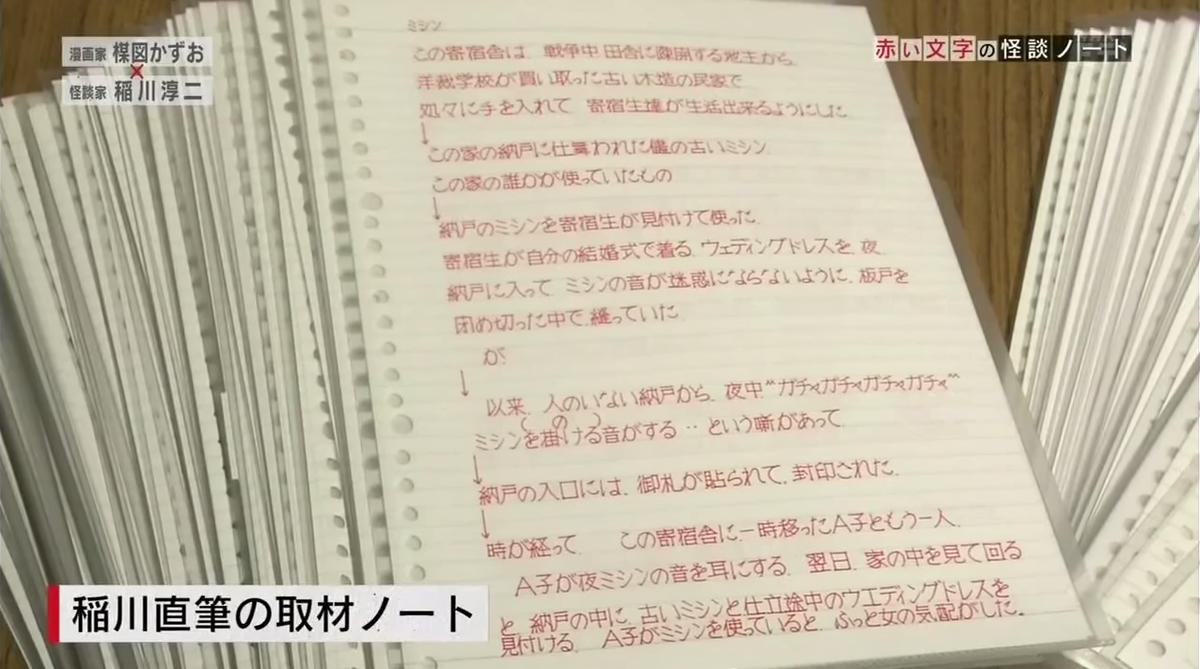 漫画家 楳図かずお
×
怪談家 稲川淳二
赤い文字の怪談ノート
ミシン
この寄宿舎は、戦争中 田舎に疎開する地主から、
洋裁学校が買い取った古い木造の民家で
処々に手を入れて 寄宿生達が生活出来るようにした
↓
この家の納戸に仕舞われた儘の古いミシン
この家の誰かが使っていたもの
↓
納戸のミシンを寄宿生が見付けて使った。
寄宿生が自分の結婚式で着る、ウェディングドレスを、夜、
納戸に入って ミシンの音が迷惑にならないように、板戸を
閉め切った中で、縫っていた
が
↓
以来、人のいない納戸から、夜中 "ガチャガチャガチャガチャ"
ミシンを掛ける音がする‥という噺があって
↓
納戸の入口には、御札が貼られて、封印された。
↓
時が経って この寄宿舎に一時移ったA子ともう一人、
A子が夜ミシンの音を耳にする、翌日、家の中を見て回る
と、納戸の中に、古いミシンと仕立途中のウエディングドレスを
見付ける、 A子がミシンを使っていると、ふっと女の気配がした。
稲川直筆の取材ノート